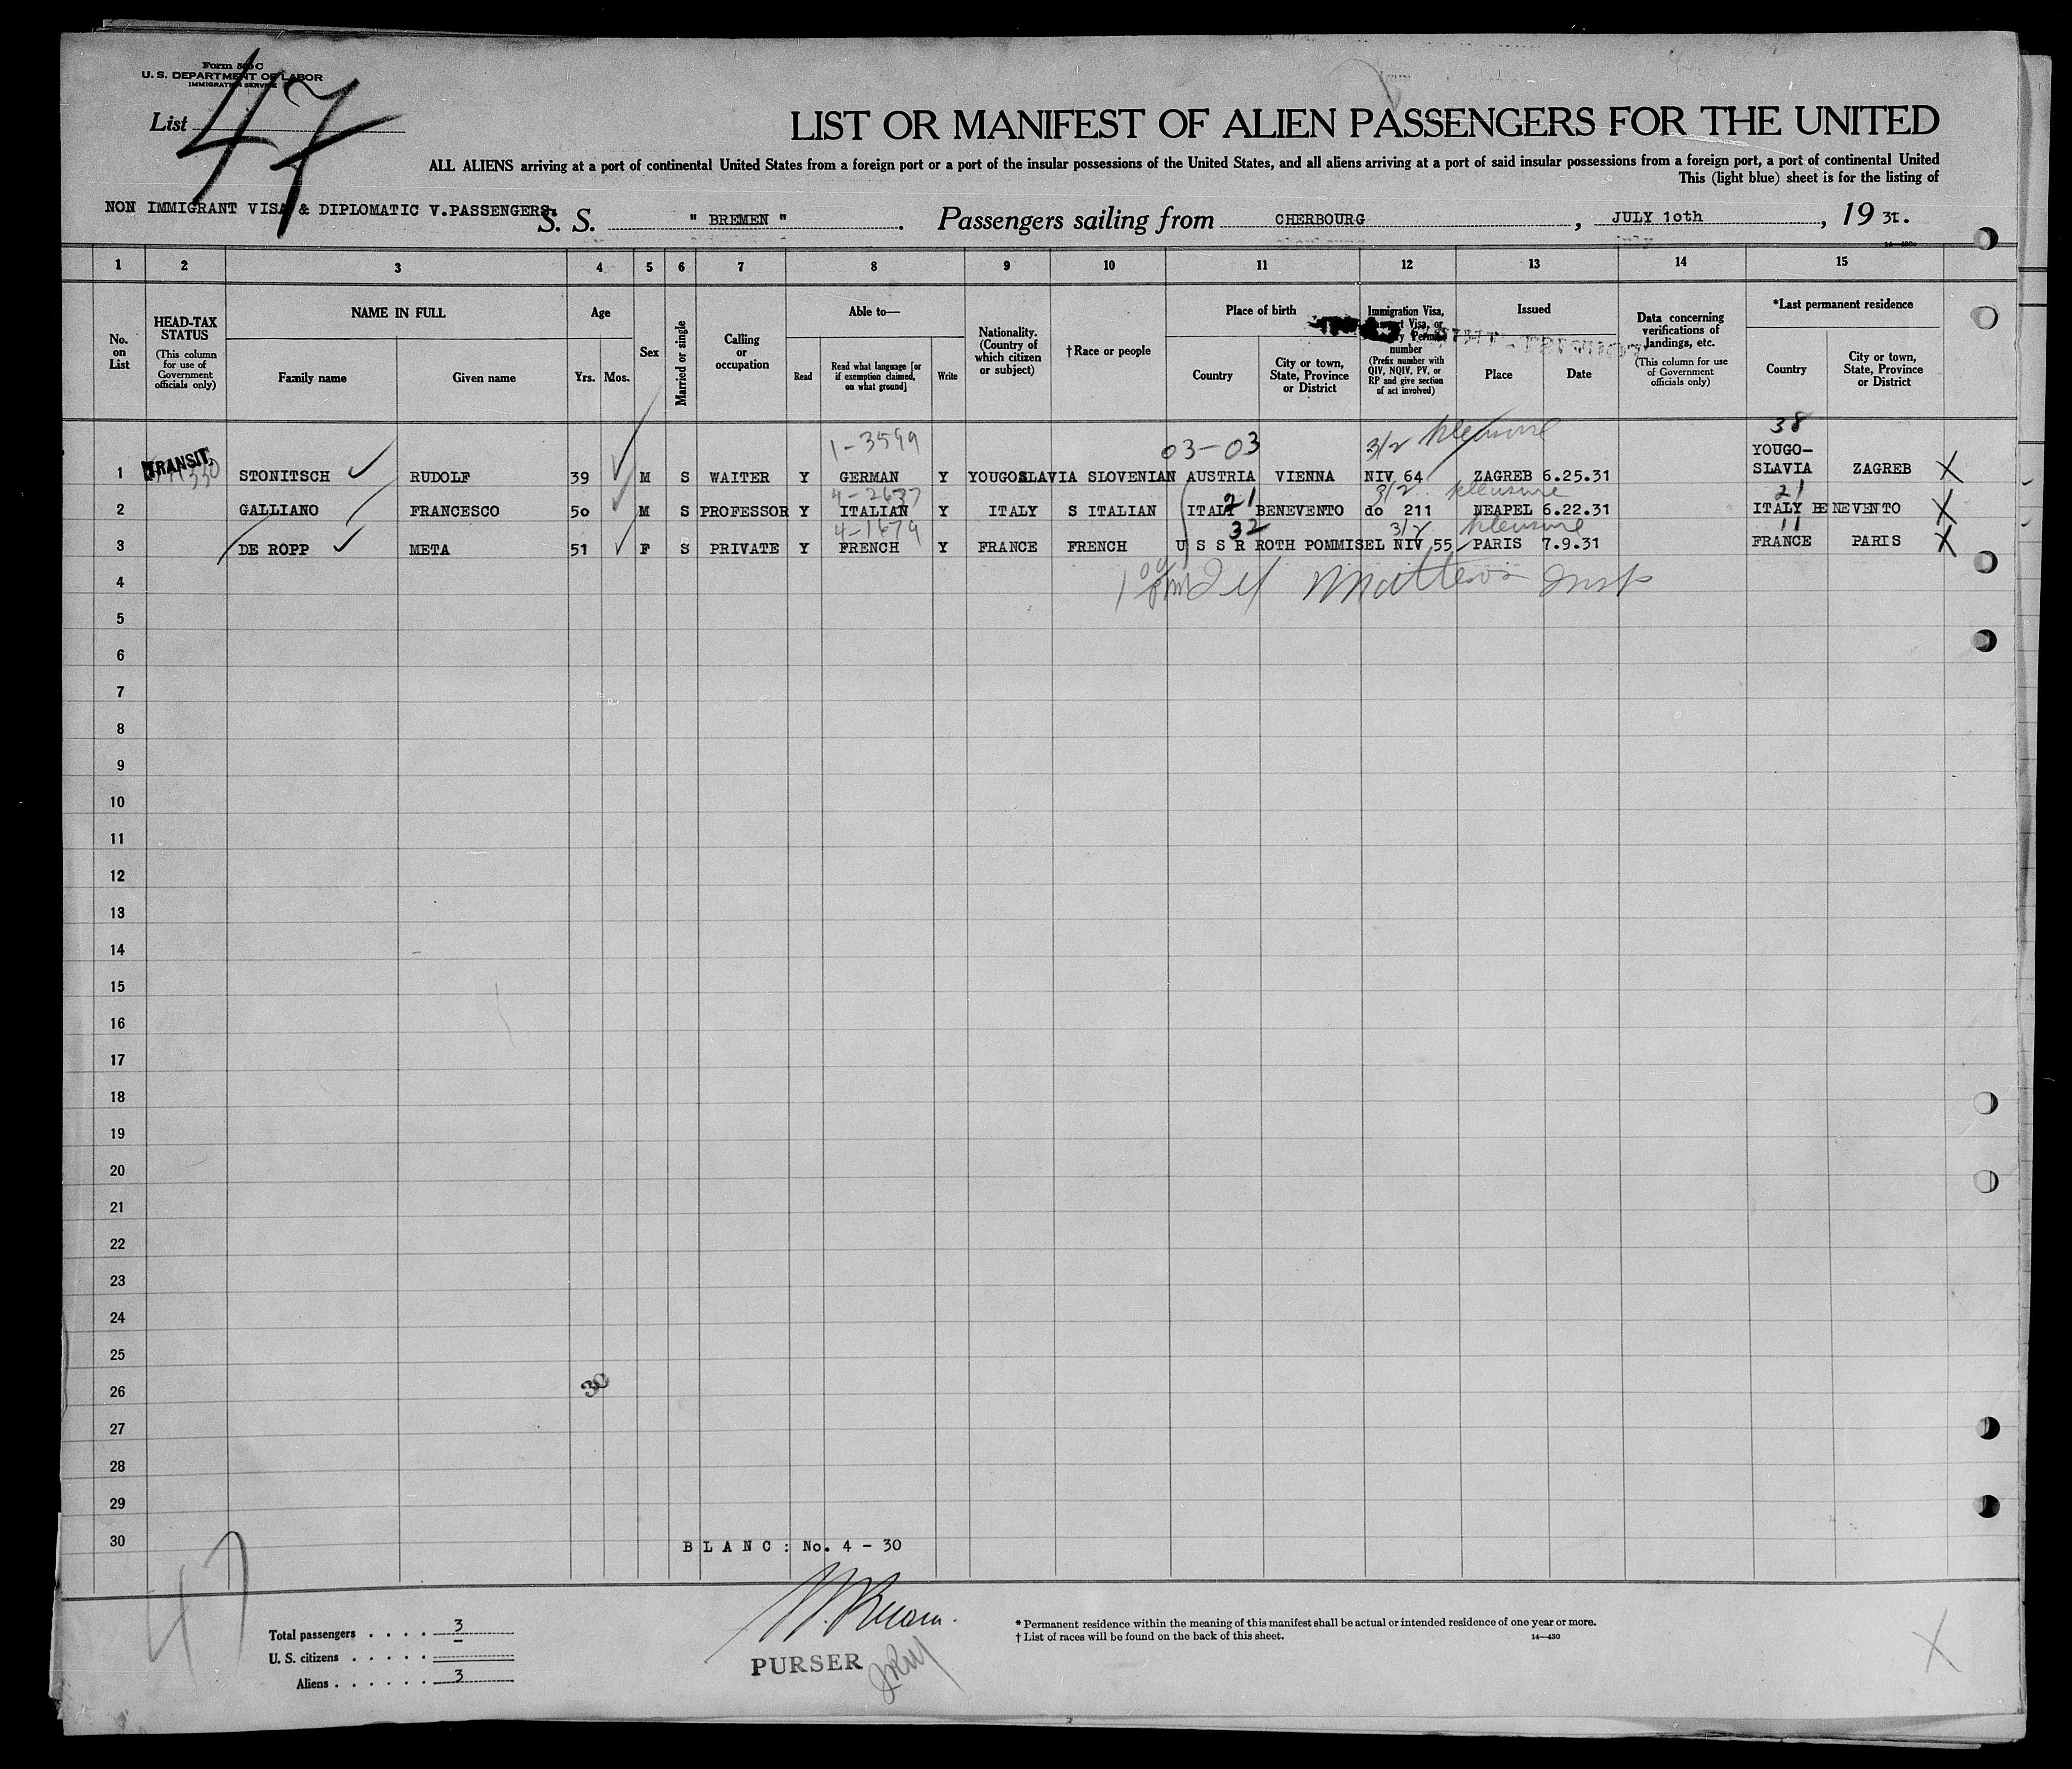 Form 500 C
U. S. DEPARTMENT OF LABOR
IMMIGRATION SERVICE
List 47
LIST OR MANIFEST OF ALIEN PASSENGERS FOR THE UNITED
ALL ALIENS arriving at a port of continental United States from a foreign port or a port of the insular possessions of the United States, and all aliens arriving at a port of said insular possessions from a foreign port, a port of continental United
This (light blue) sheet is for the listing of
NON IMMIGRANT VISA & DIPLOMATIC V.PASSENGERS.
S. S. " BREMEN ". Passengers sailing from CHERBOURG, JULY 10th, 19 31.
1 2 3 4 5 6 7 8 9 10 11 12 13 14 15
No. on List
HEAD-TAX STATUS (This column for use of Government officials only)
NAME IN FULL
Family name Given name
Age
Yrs. Mos.
Sex
Married or single
Calling or occupation
Able to—
Read Read what language [or if exemption claimed, on what ground] Write
Nationality. (Country of which citizen or subject)
†Race or people
Place of birth
Country City or town, State, Province or District
Immigration Visa, Visa, or Permit number (Prefix number with QIV, NQIV, PV, or RP and give section of act involved)
Issued
Place Date
Data concerning verifications of landings, etc. (This column for use of Government officials only)
*Last permanent residence
Country City or town, State, Province or District
1-3599 03-03 3/2 pleasure 38
1 TRANSIT. STONITSCH RUDOLF 39 M S WAITER Y GERMAN Y YOUGOSLAVIA SLOVENIAN AUSTRIA VIENNA NIV 64 ZAGREB 6.25.31 YOUGO-SLAVIA ZAGREB X
4-2637 21 3/2 pleasure 21
2 GALLIANO FRANCESCO 50 M S PROFESSOR Y ITALIAN Y ITALY S ITALIAN ITALY BENEVENTO do 211 NEAPEL 6.22.31 ITALY BENEVENTO X
4-1679 32 3/2 pleasure 11
3 DE ROPP META 51 F S PRIVATE Y FRENCH Y FRANCE FRENCH U S S R ROTH POMMISEL NIV 55 PARIS 7.9.31 FRANCE PARIS X
4 Matthews Insp
5
6
7
8
9
10
11
12
13
14
15
16
17
18
19
20
21
22
23
24
25
26 30
27
28
29
30 BLANC: No. 4 - 30
47
Total passengers . . . . 3
U. S. citizens . . . . . –
Aliens . . . . . . 3
PURSER
* Permanent residence within the meaning of this manifest shall be actual or intended residence of one year or more.
† List of races will be found on the back of this sheet. 14—430
X